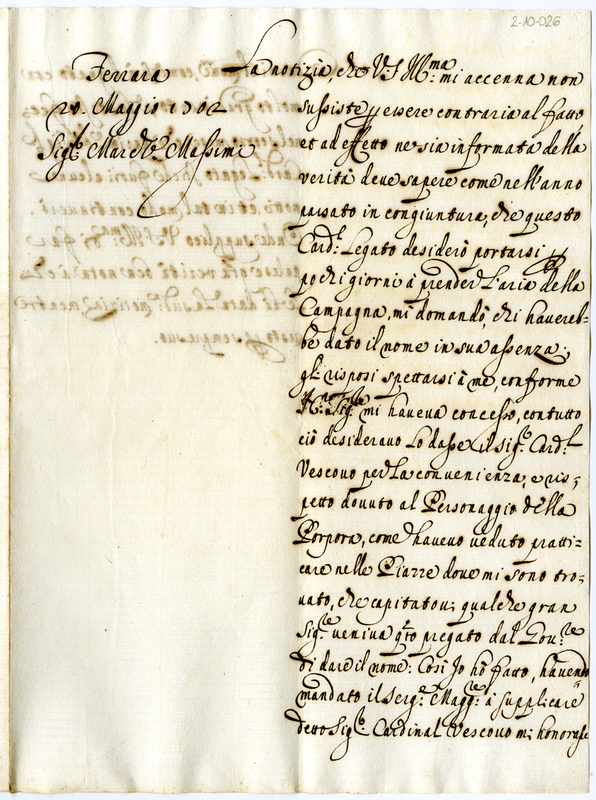 2-10-026
Ferrara
20. Maggio 1702
Sigr. March. Massimi
La notizia, che V.S. Ill.ma mi accenna non
sussiste p essere contraria al fatto
et ad effetto ne sia informata della
verità deve sapere come nell'anno
passato in congiuntura, che questo
Card.l Legato desiderò portarsi p
pochi giorni à prender L'aria della
Campagna, mi domandò, chi havereb-
be dato il nome in sua assenza;
gli risposi spettarsi à me, conforme
N.ro Sig.re mi haveva concesso, con tutto
ciò desideravo Lo dasse il sig.r Card.l
Vescovo per La convenienza, e ris-
petto dovuto al Personaggio della
Porpora, come havevo veduto pratti-
care nelle Piazze dove mi sono tro-
vato, che capitatovi qualche gran
Sig.re veniva q.to pregato dal Gov.re
di dare il nome: Così Io hò fatto, havendo
mandato il Serg.e Magg.re à supplicare
detto Sig.r Cardinal Vescovo mi honorasse